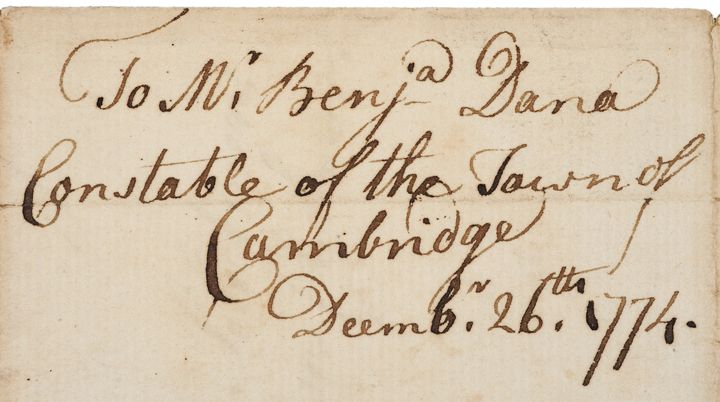 To Mr. Benja Dana
Constable of the Town of
Cambridge
Decmbr. 26th. 1774.